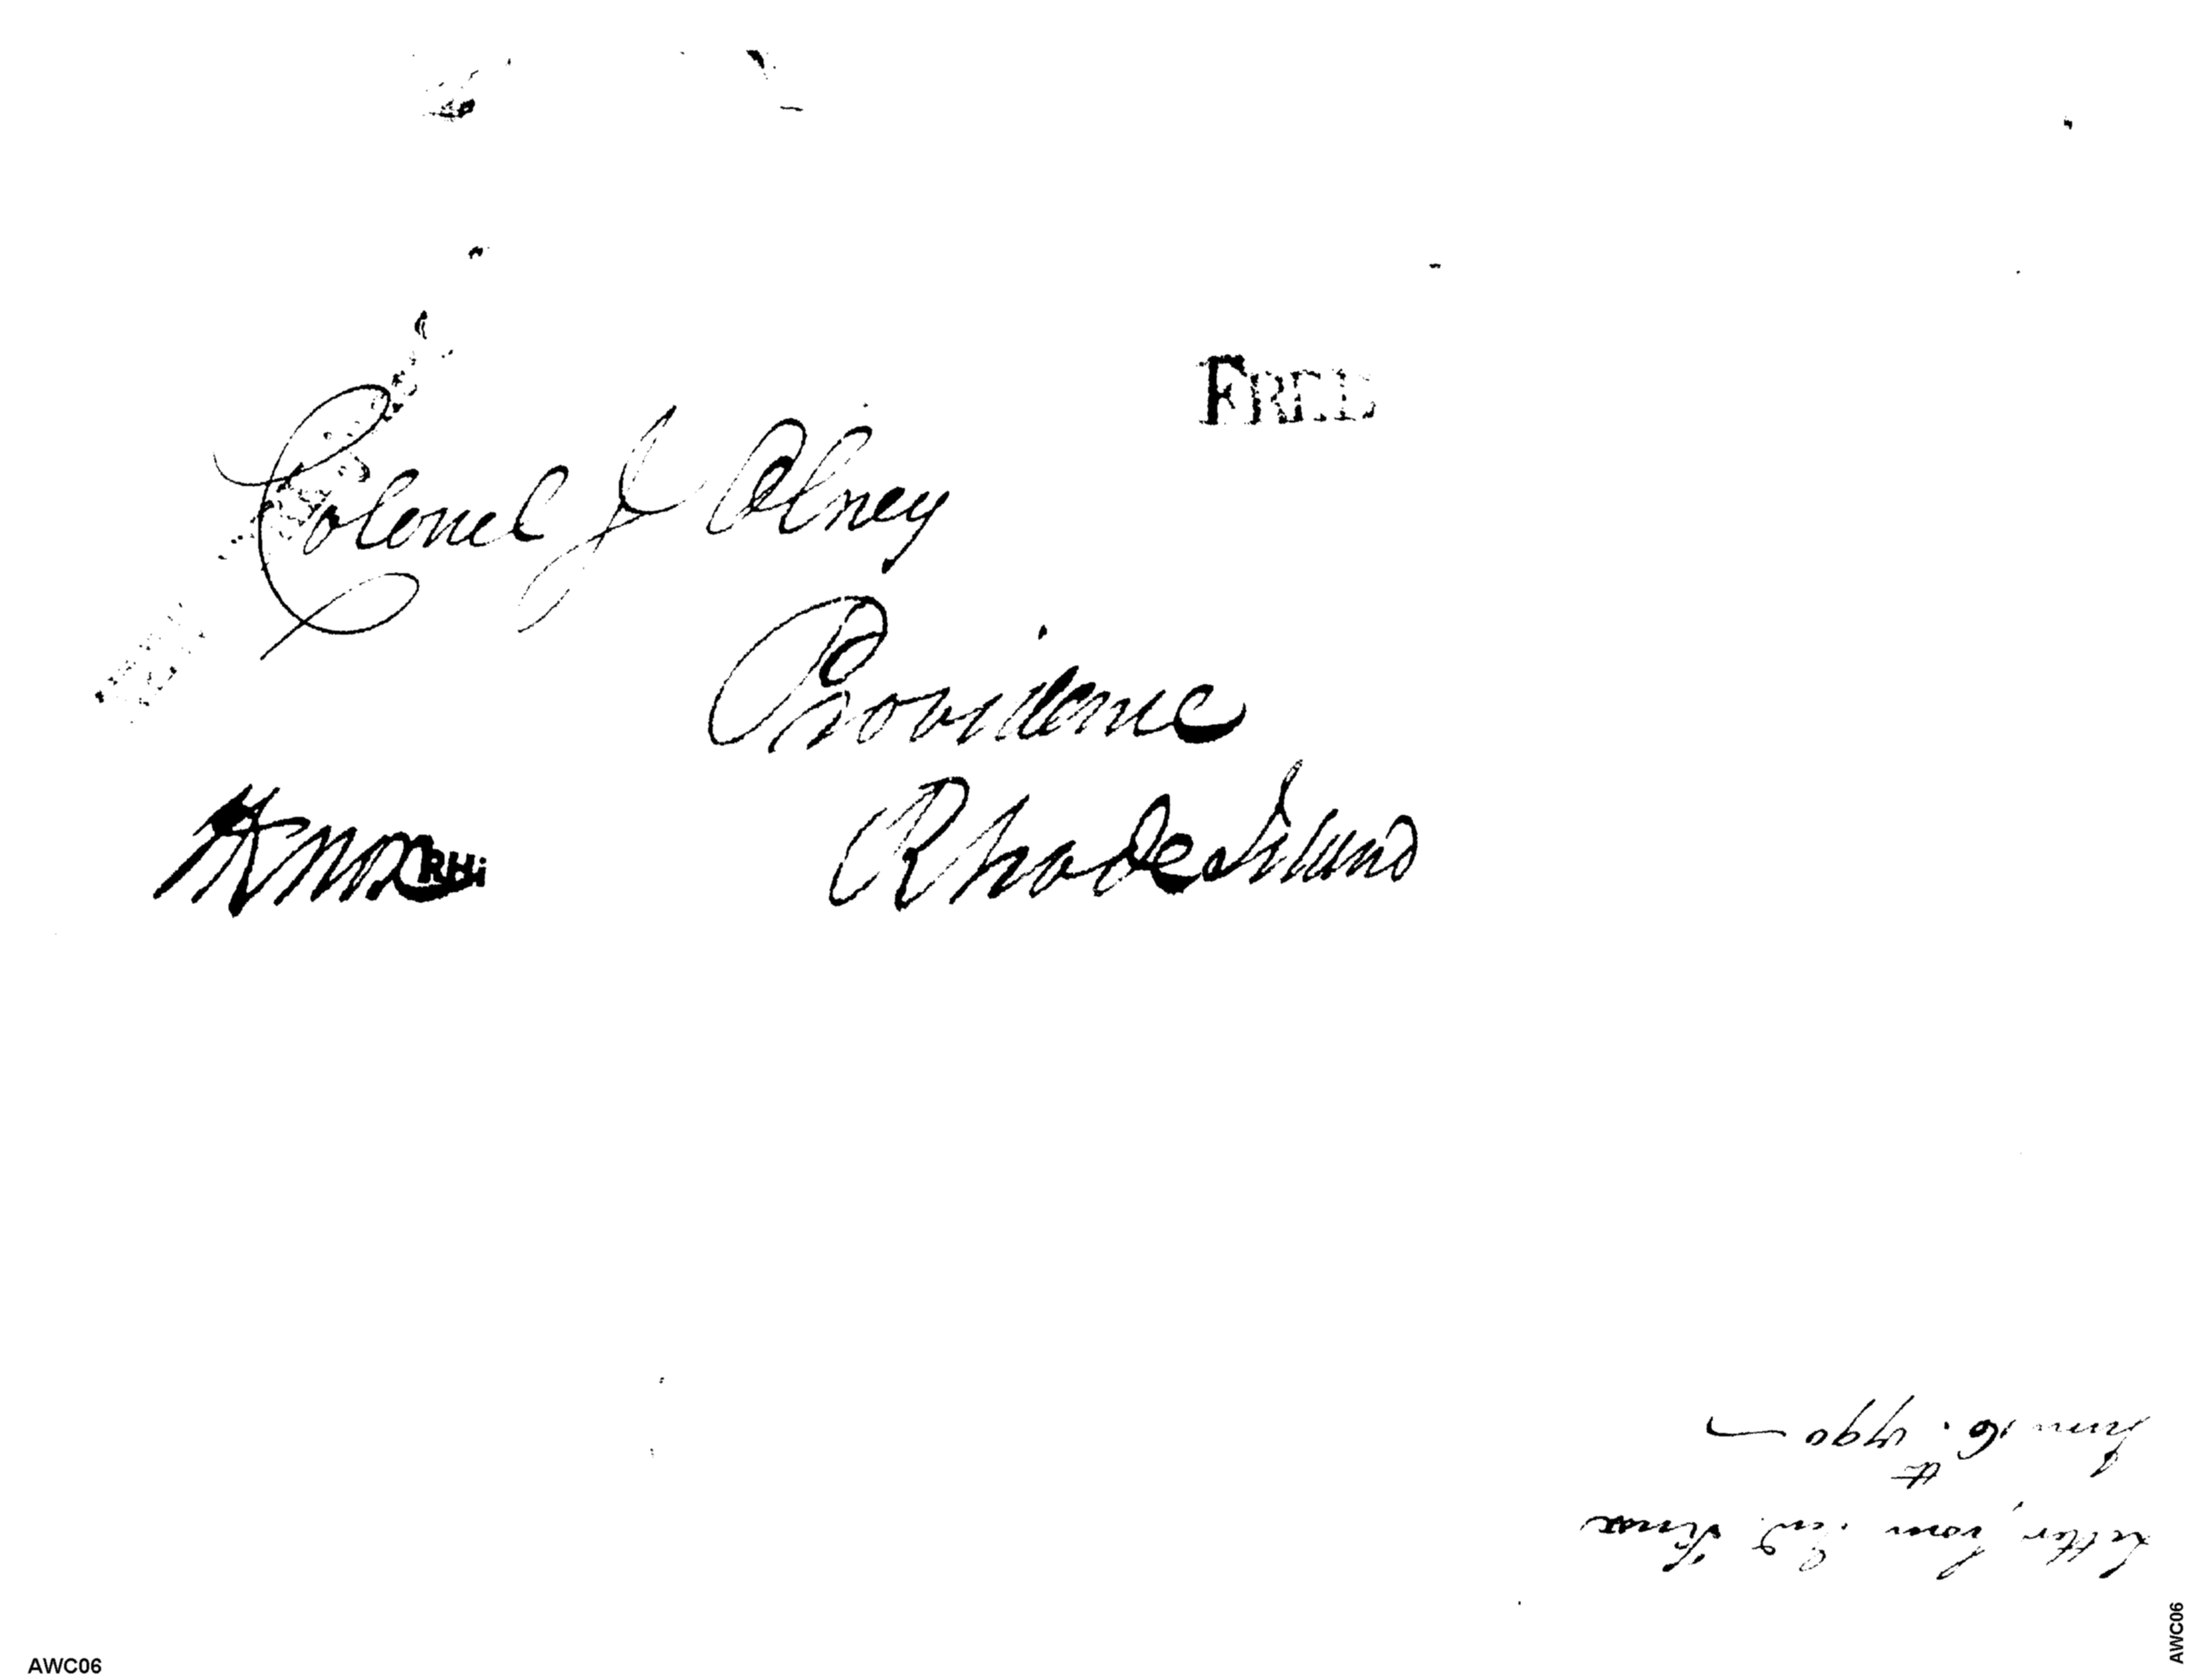 FREE
Colonel J Olney
Providence
Rhode Island
HKnox
RHi
Letter from Knox
June 16. 1790
AWC06
AWC06